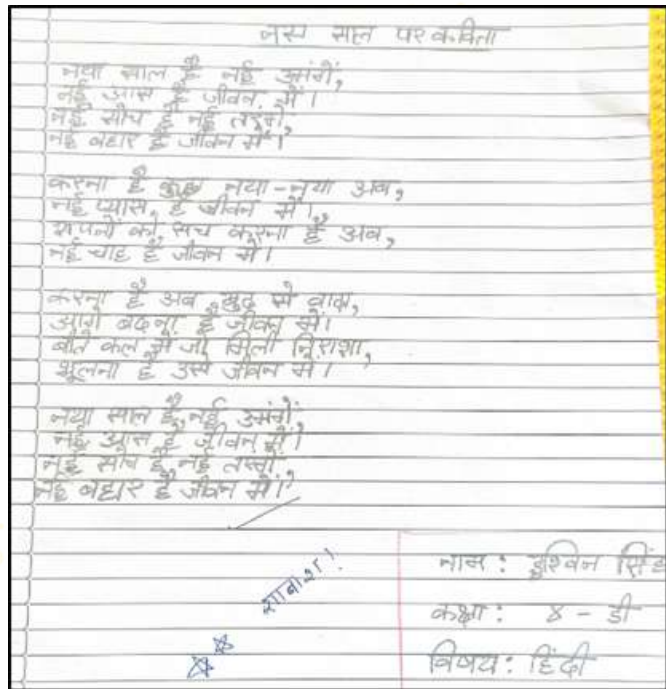 नए साल पर कविता
नया साल है नई उमंगें,
नई आस है जीवन में।
नई सोच है नई तरंगें,
नई बहार है जीवन में।
करना है कुछ नया-नया अब,
नई प्यास है जीवन में।
सपनों को सच करना है अब,
नई चाह है जीवन में।
करना है अब खुद से वादा,
आगे बढ़ना है जीवन में।
बीते कल में जो मिली निराशा,
भूलना है उसे जीवन में।
नया साल है नई उमंगें,
नई आस है जीवन में।
नई सोच है नई तरंगें,
नई बहार है जीवन में।
शाबाश!
नाम : सिंह
कक्षा : ४ - डी
विषय : हिंदी